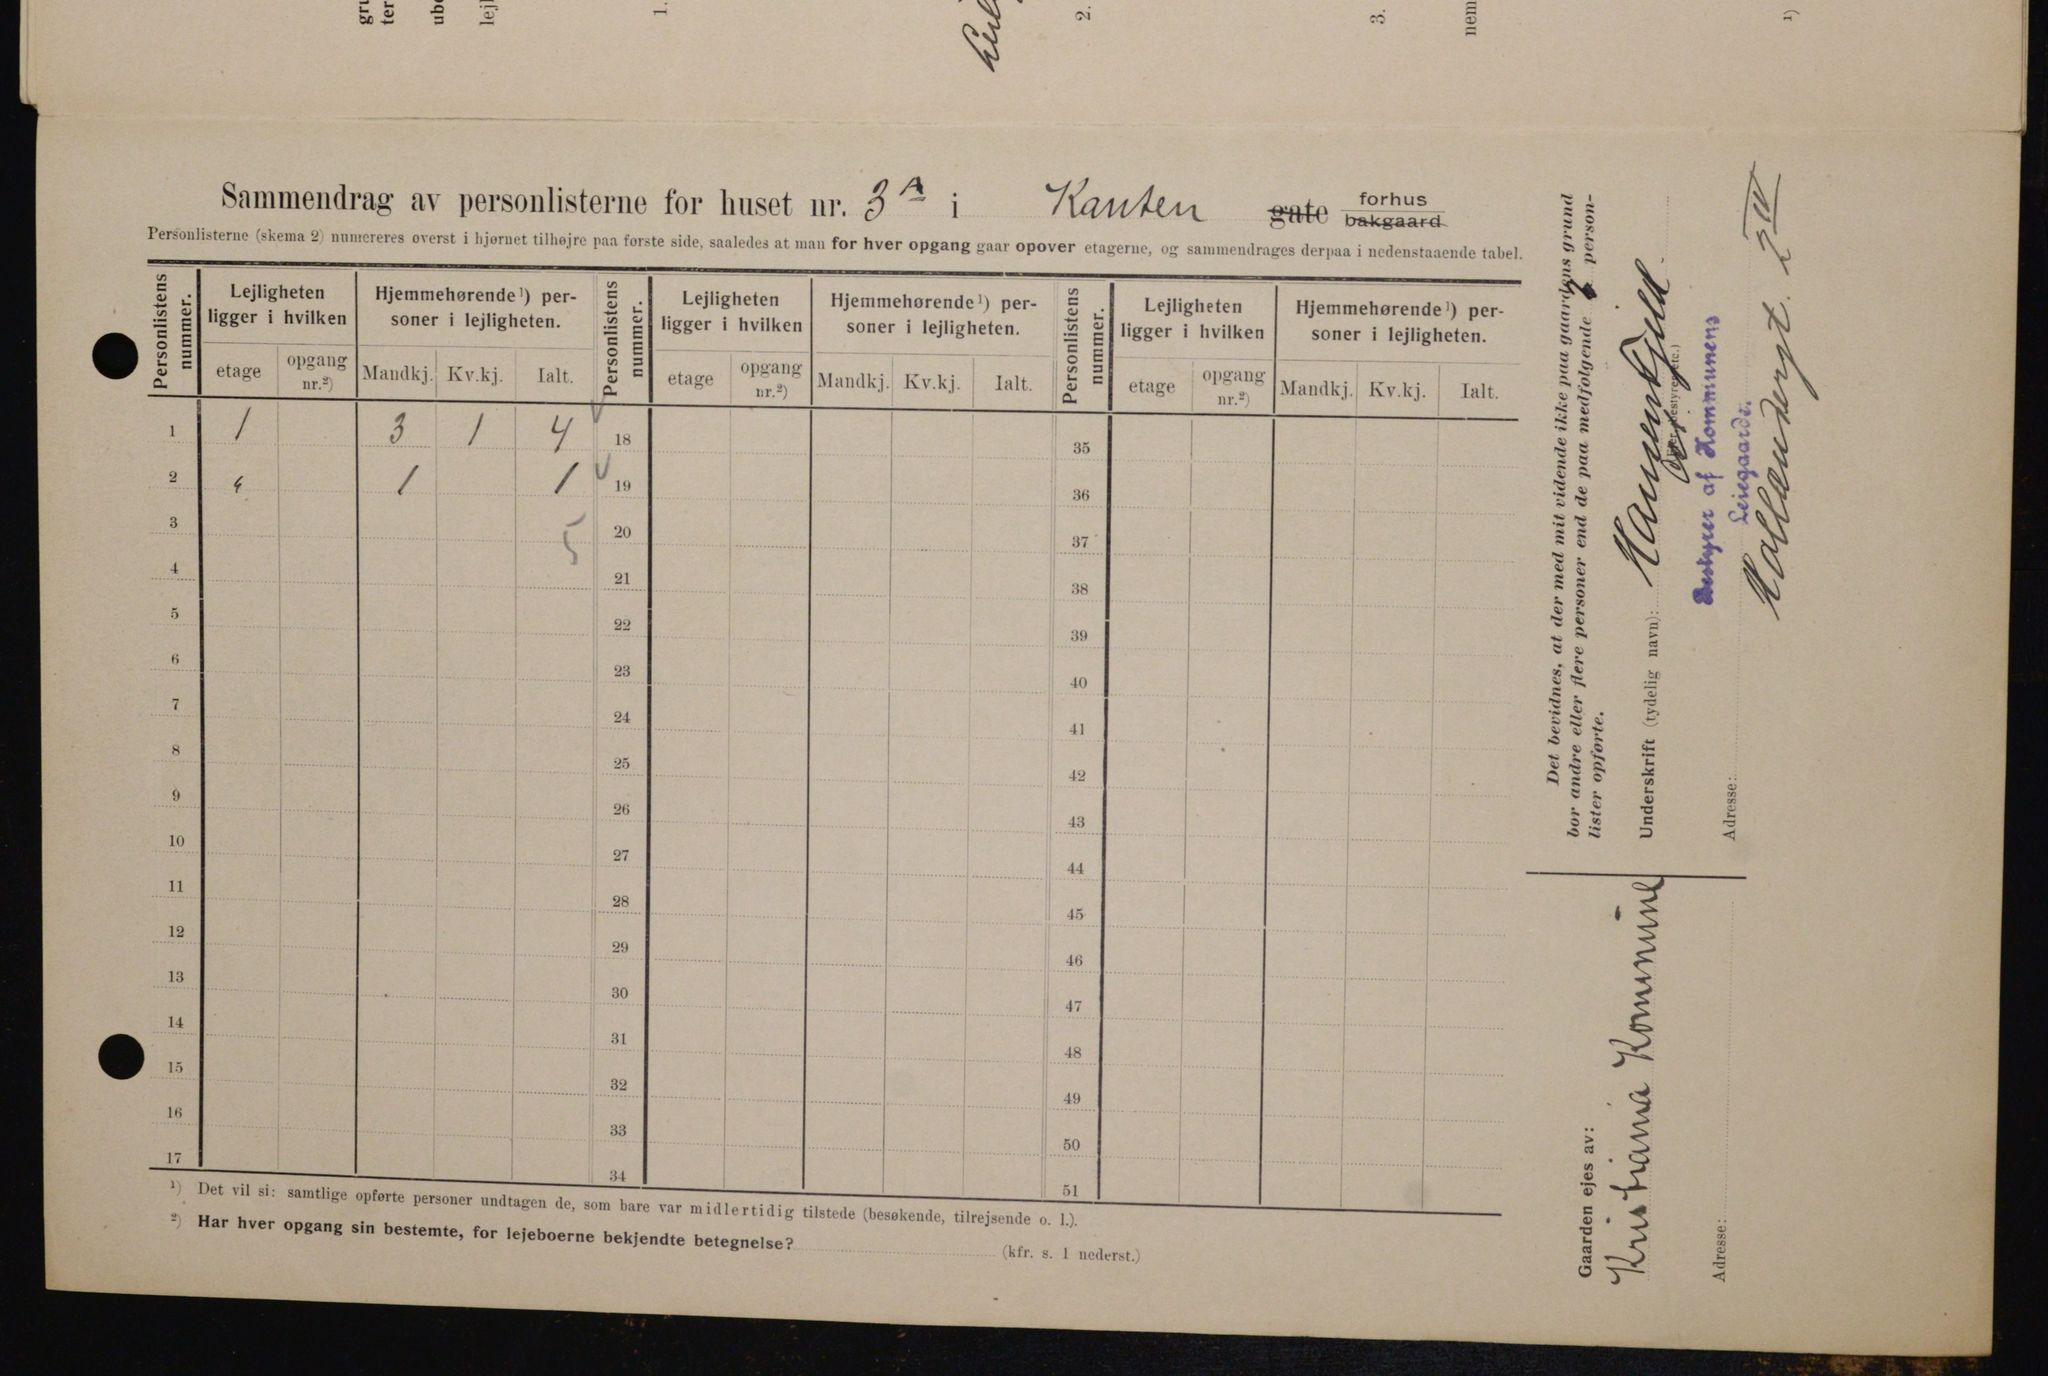 gru
ter
ube
lejl
1.
2.
3.
nem
¹)
Sammendrag av personlisterne for huset nr. 3 A i Kanten gate forhus bakgaard
Personlisterne (skema 2) numereres øverst i hjørnet tilhøjre paa første side, saaledes at man for hver opgang gaar opover etagerne, og sammendrages derpaa i nedenstaaende tabel.
Personlistens nummer. Lejligheten ligger i hvilken Hjemmehørende¹) personer i lejligheten. Personlistens nummer. Lejligheten ligger i hvilken Hjemmehørende¹) personer i lejligheten. Personlistens nummer. Lejligheten ligger i hvilken Hjemmehørende¹) personer i lejligheten.
etage opgang nr.²) Mandkj. Kv.kj. Ialt. etage opgang nr.²) Mandkj. Kv.kj. Ialt. etage opgang nr.²) Mandkj. Kv.kj. Ialt.
1 1 3 1 4 18 35
2 " 1 1 19 36
3 5 20 37
4 21 38
5 22 39
6 23 40
7 24 41
8 25 42
9 26 43
10 27 44
11 28 45
12 29 46
13 30 47
14 31 48
15 32 49
16 33 50
17 34 51
¹) Det vil si: samtlige opførte personer undtagen de, som bare var midlertidig tilstede (besøkende, tilrejsende o. l.).
²) Har hver opgang sin bestemte, for lejeboerne bekjendte betegnelse? (kfr. s. 1 nederst.)
Det bevidnes, at der med mit vidende ikke paa gaardens grund
bor andre eller flere personer end de paa medfølgende 2 person-
lister opførte.
Underskrift (tydelig navn):
(Ejer, bestyrer etc.)
Bestyrer af Kommunens
Leiegaarde.
Adresse: Hollændergt. 2 IV
Gaarden ejes av:
Kristiania Kommune
Adresse: